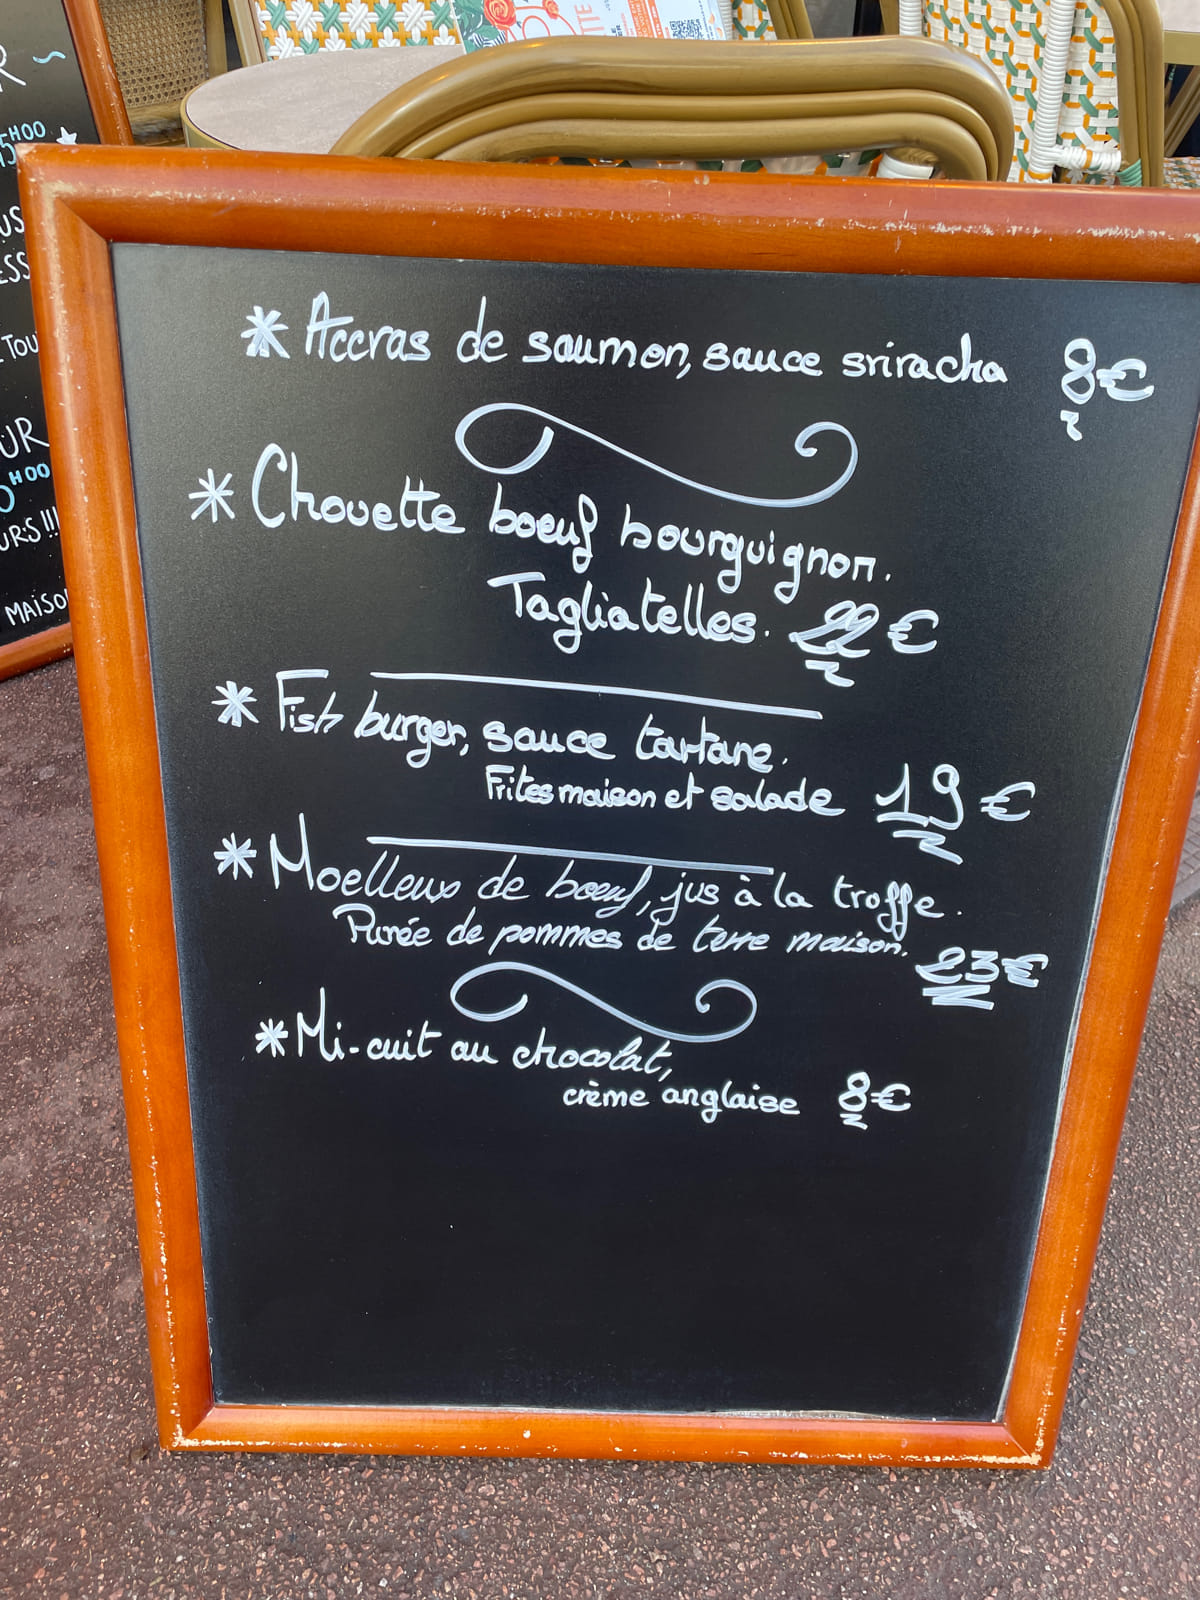 R ~
15H00
US
ESS
TOU
UR
H00
URS !!!
MAISO
* Accras de saumon, sauce sriracha 8€
* Chouette boeuf bourguignon.
Tagliatelles. 22€
* Fish burger, sauce tartare.
Frites maison et salade 19€
* Moelleux de boeuf, jus à la truffe.
Purée de pommes de terre maison. 23€
* Mi-cuit au chocolat,
crème anglaise 8€